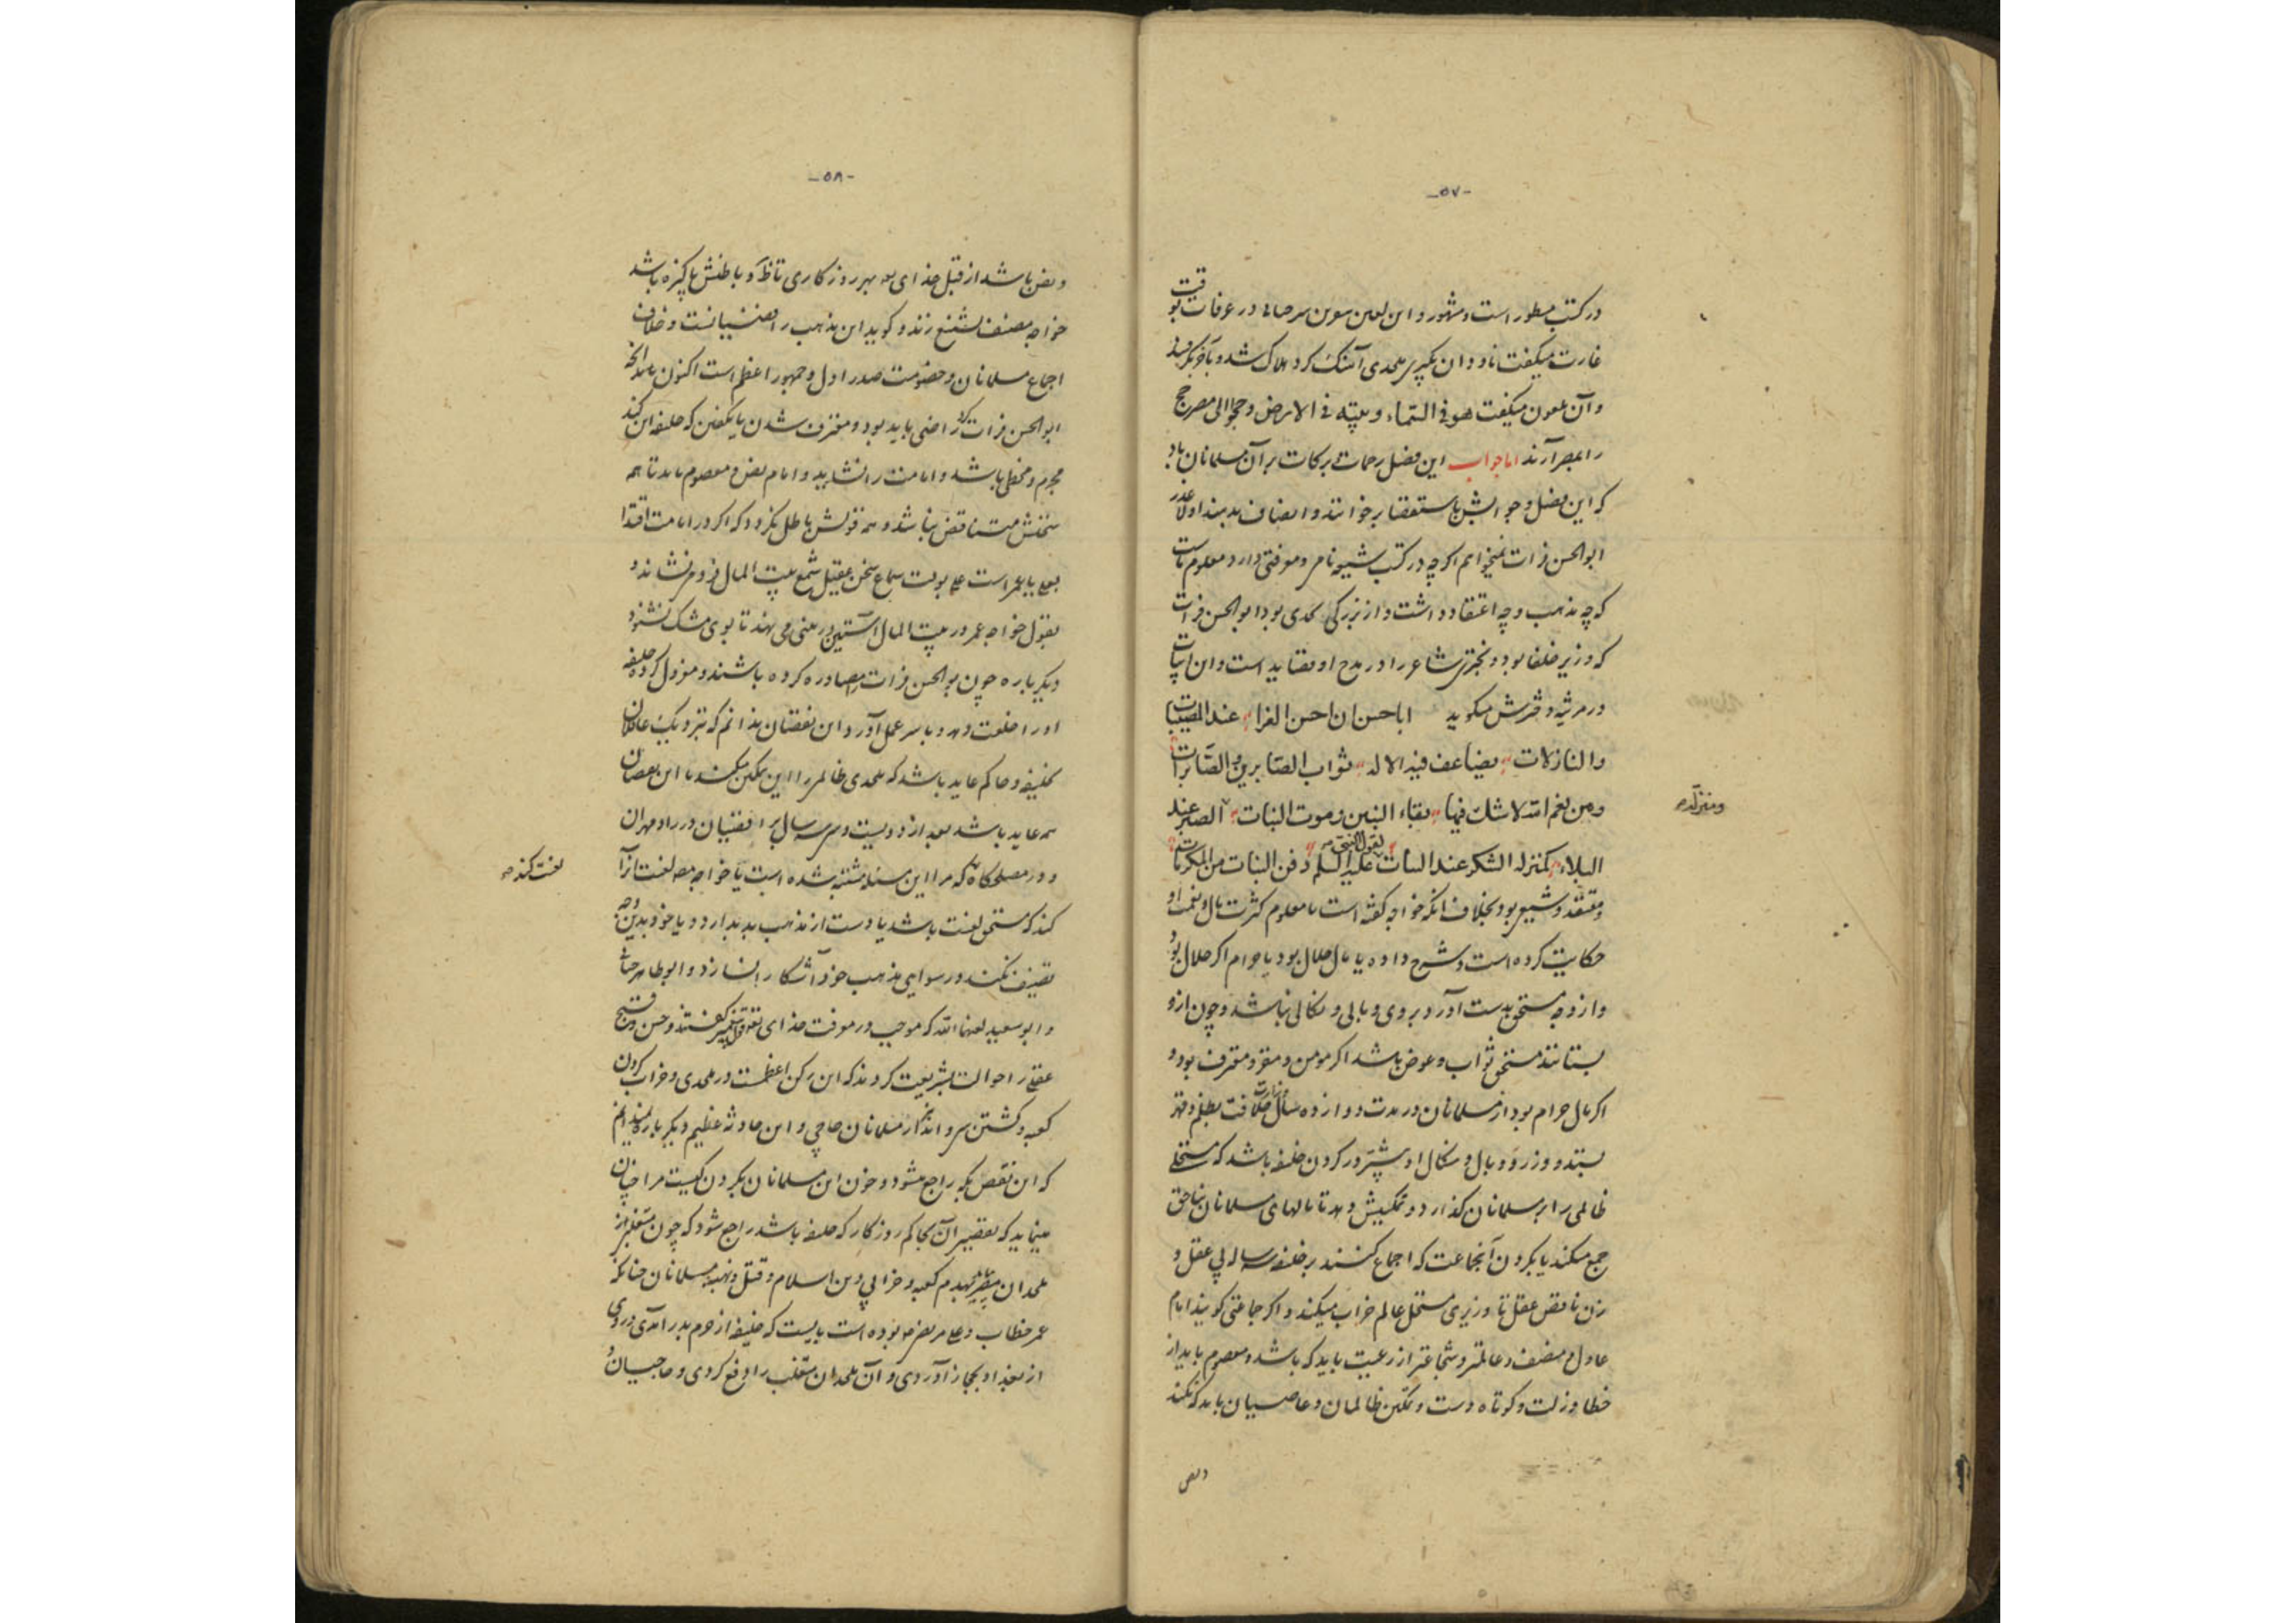 -۵۷-
در کتب مسطور است و مشهور و این لعین ملعون سرحانی در عرفات بوقت
غارت میگفت ناودان بگیر ملحدی آهنگ کرد هلاک شد و بآخر بگرفتند
و آن ملعون میگفت هو فی السماء و بیته فی الارض و حجوا الی مصر حج
را بمصر آرند اما جواب این فصل رحمات و برکات بر آن مسلمانان باد
که این فصل و جوابش باستقصا برخوانند و انصاف بدهند اولا عذر
ابوالحسن فرات نمیخواهم اگرچه در کتب شیعه نامی و موقعی دارد معلوم نیست
که چه مذهب و چه اعتقاد داشت و از بزرگی بحدی بود ابوالحسن فرات
که وزیر خلفا بود و بحتری شاعر را در مدح او قصاید است و این ابیات
در مرثیه دخترش میگوید ابا حسن ان احسن العزا عند المصیبات
والنازلات یضاعف فیه الاله ثواب الصابرین والصابرات
ومن نعم الله لا شک فیها بقاء البنین وموت البنات الصبر عند
البلاء کمنزله الشکر عند البنات یقول النبی علیه السلم دفن البنات من المکرمات
و معتقد و شیعی بود بخلاف آنکه خواجه گفته است یا معلوم کثرت مال و نعمت او
حکایت کرده است و شرح داده یا مال حلال بود یا حرام اگر حلال بود
و از وجه مستحق بدست آورد بر وی وبالی و نکالی نباشد و چون ازو
بستانند مستحق ثواب و عوض باشد اگر مومن و مقر و معترف بود و
اگر مال حرام بود از مسلمانان در مدت دوازده سال خلافت بظلم و قهر
بستد و وزر و وبال و نکال او بیشتر در گردن خلیفه باشد که مستحلی
ظالمی را بر مسلمانان گذارد و تمکینش دهد تا مالهای مسلمانان بناحق
جمع میکند یا بگردن آنجماعت که اجماع کنند بر خلیفه ساله بی عقل و
زنان ناقص عقل تا وزیری مستحل عالم خراب میکند و اگر جماعتی گویند امام
عادل و منصف و عالمتر و شجاعتر از رعیت باید که باشد و معصوم باید از
خطا و زلت و کوتاه دست و تمکین ظالمان و عاصیان باید که نکند
و نص
و منزله
-۵۸-
و نص باشد از قبل خدای بهر روزگاری تا ظاهر و باطنش پاکیزه باشد
خواجه مصنف تشنیع زند و گوید این مذهب رافضیانست و خلاف
اجماع مسلمانان و خصومت صدر اول و جمهور اعظم است اکنون
ابوالحسن فرات کرد راضی باید بود و معترف شدن یا بگفتن که خلیفه این کند
مجرم و مخطی باشد و امامت را نشاید و امام نص و معصوم باید تا هم
سخنش متناقض نباشد و هم قولش باطل نگردد که اگر در امامت اقتدا
بعلی یا بعمر است علی بوقت سماع سخن عقیل شمع بیت المال فرومی‌نشاند و
بقول خواجه عمر در بیت المال آستین در بینی می نهد تا بوی مشک نشنود
دیگر باره چون بوالحسن فرات را مصادره کرده باشند و معزول کرده خلیفه
او را خلعت دهد و با سر عمل آورد این نقصان ندانم که بنزدیک عاقلان
بخلیفه و حاکم عاید باشد که ملحدی ظالم را این تمکین میکند یا این نقصان
هم عاید باشد بعد از دویست و سی سال بر رافضیان در راد مهران
و در مصلحگاه که مرا این مسئله مشتبه شده است تا خواجه مصنف لعنت آنرا
کند که مستحق لعنت باشد یا دست از مذهب بد بدارد و یا خود بدین وجه
تصنیف نکند و رسوایی مذهب خود آشکارا نسازد و ابوطاهر جنابی
و ابوسعید لعنهما الله که موجب در معرفت خدای تعالی قول پیغمبر گفتند و حسن و قبح
عقلی را حوالت بشریعت کردند که این رکن اعظمست در ملحدی و خراب کردن
کعبه و کشتن سی و اند هزار مسلمانان حاجی و این حادثه عظیم دیگر باره نمیدانم
که این نقص بکه راجع میشود و خون این مسلمانان بگردن کیست مرا چنان
مینماید که تقصیر آن بحاکم روزگار که خلیفه باشد راجع شود که چون متغلبی از
ملحدان مصر بهدم کعبه و خرابی دین اسلام و قتل و نهب مسلمانان چنانکه
عمر خطاب و علی مرتضی بوده است بایست که خلیفه از حرم بدر آمدی و روی
از بغداد بحجاز آوردی و آن ملحدان متغلب را دفع کردی و حاجیان را
لعنت کند